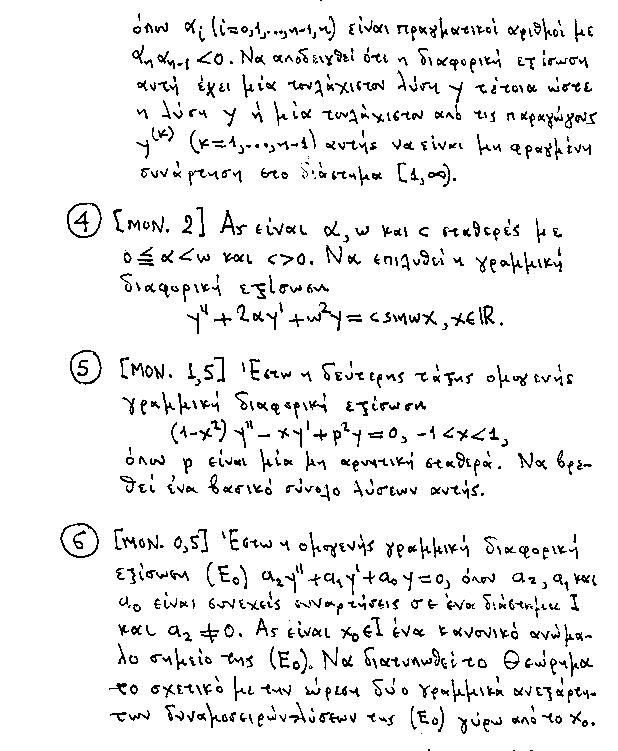 όπου α_i (i=0,1,...,n-1,n) είναι πραγματικοί αριθμοί με
α_n α_{n-1} < 0. Να αποδειχθεί ότι η διαφορική εξίσωση
αυτή έχει μία τουλάχιστον λύση y τέτοια ώστε
η λύση y ή μία τουλάχιστον από τις παραγώγους
y^{(κ)} (κ=1,...,n-1) αυτής να είναι μη φραγμένη
συνάρτηση στο διάστημα [1,∞).
④ [ΜΟΝ. 2] Ας είναι α, ω και c σταθερές με
0 ≦ α < ω και c>0. Να επιλυθεί η γραμμική
διαφορική εξίσωση
y'' + 2αy' + ω²y = c sinωx, x∈ℝ.
⑤ [ΜΟΝ. 1,5] Έστω η δεύτερης τάξης ομογενής
γραμμική διαφορική εξίσωση
(1-x²) y'' - xy' + p²y = 0, -1<x<1,
όπου p είναι μία μη αρνητική σταθερά. Να βρε-
θεί ένα βασικό σύνολο λύσεων αυτής.
⑥ [ΜΟΝ. 0,5] Έστω η ομογενής γραμμική διαφορική
εξίσωση (E₀) a₂y''+a₁y'+a₀y=0, όπου a₂, a₁ και
a₀ είναι συνεχείς συναρτήσεις σε ένα διάστημα I
και a₂ ≠ 0. Ας είναι x₀∈I ένα κανονικό ανώμα-
λο σημείο της (E₀). Να διατυπωθεί το Θεώρημα
το σχετικό με την εύρεση δύο γραμμικά ανεξάρτη-
των δυναμοσειρών-λύσεων της (E₀) γύρω από το x₀.